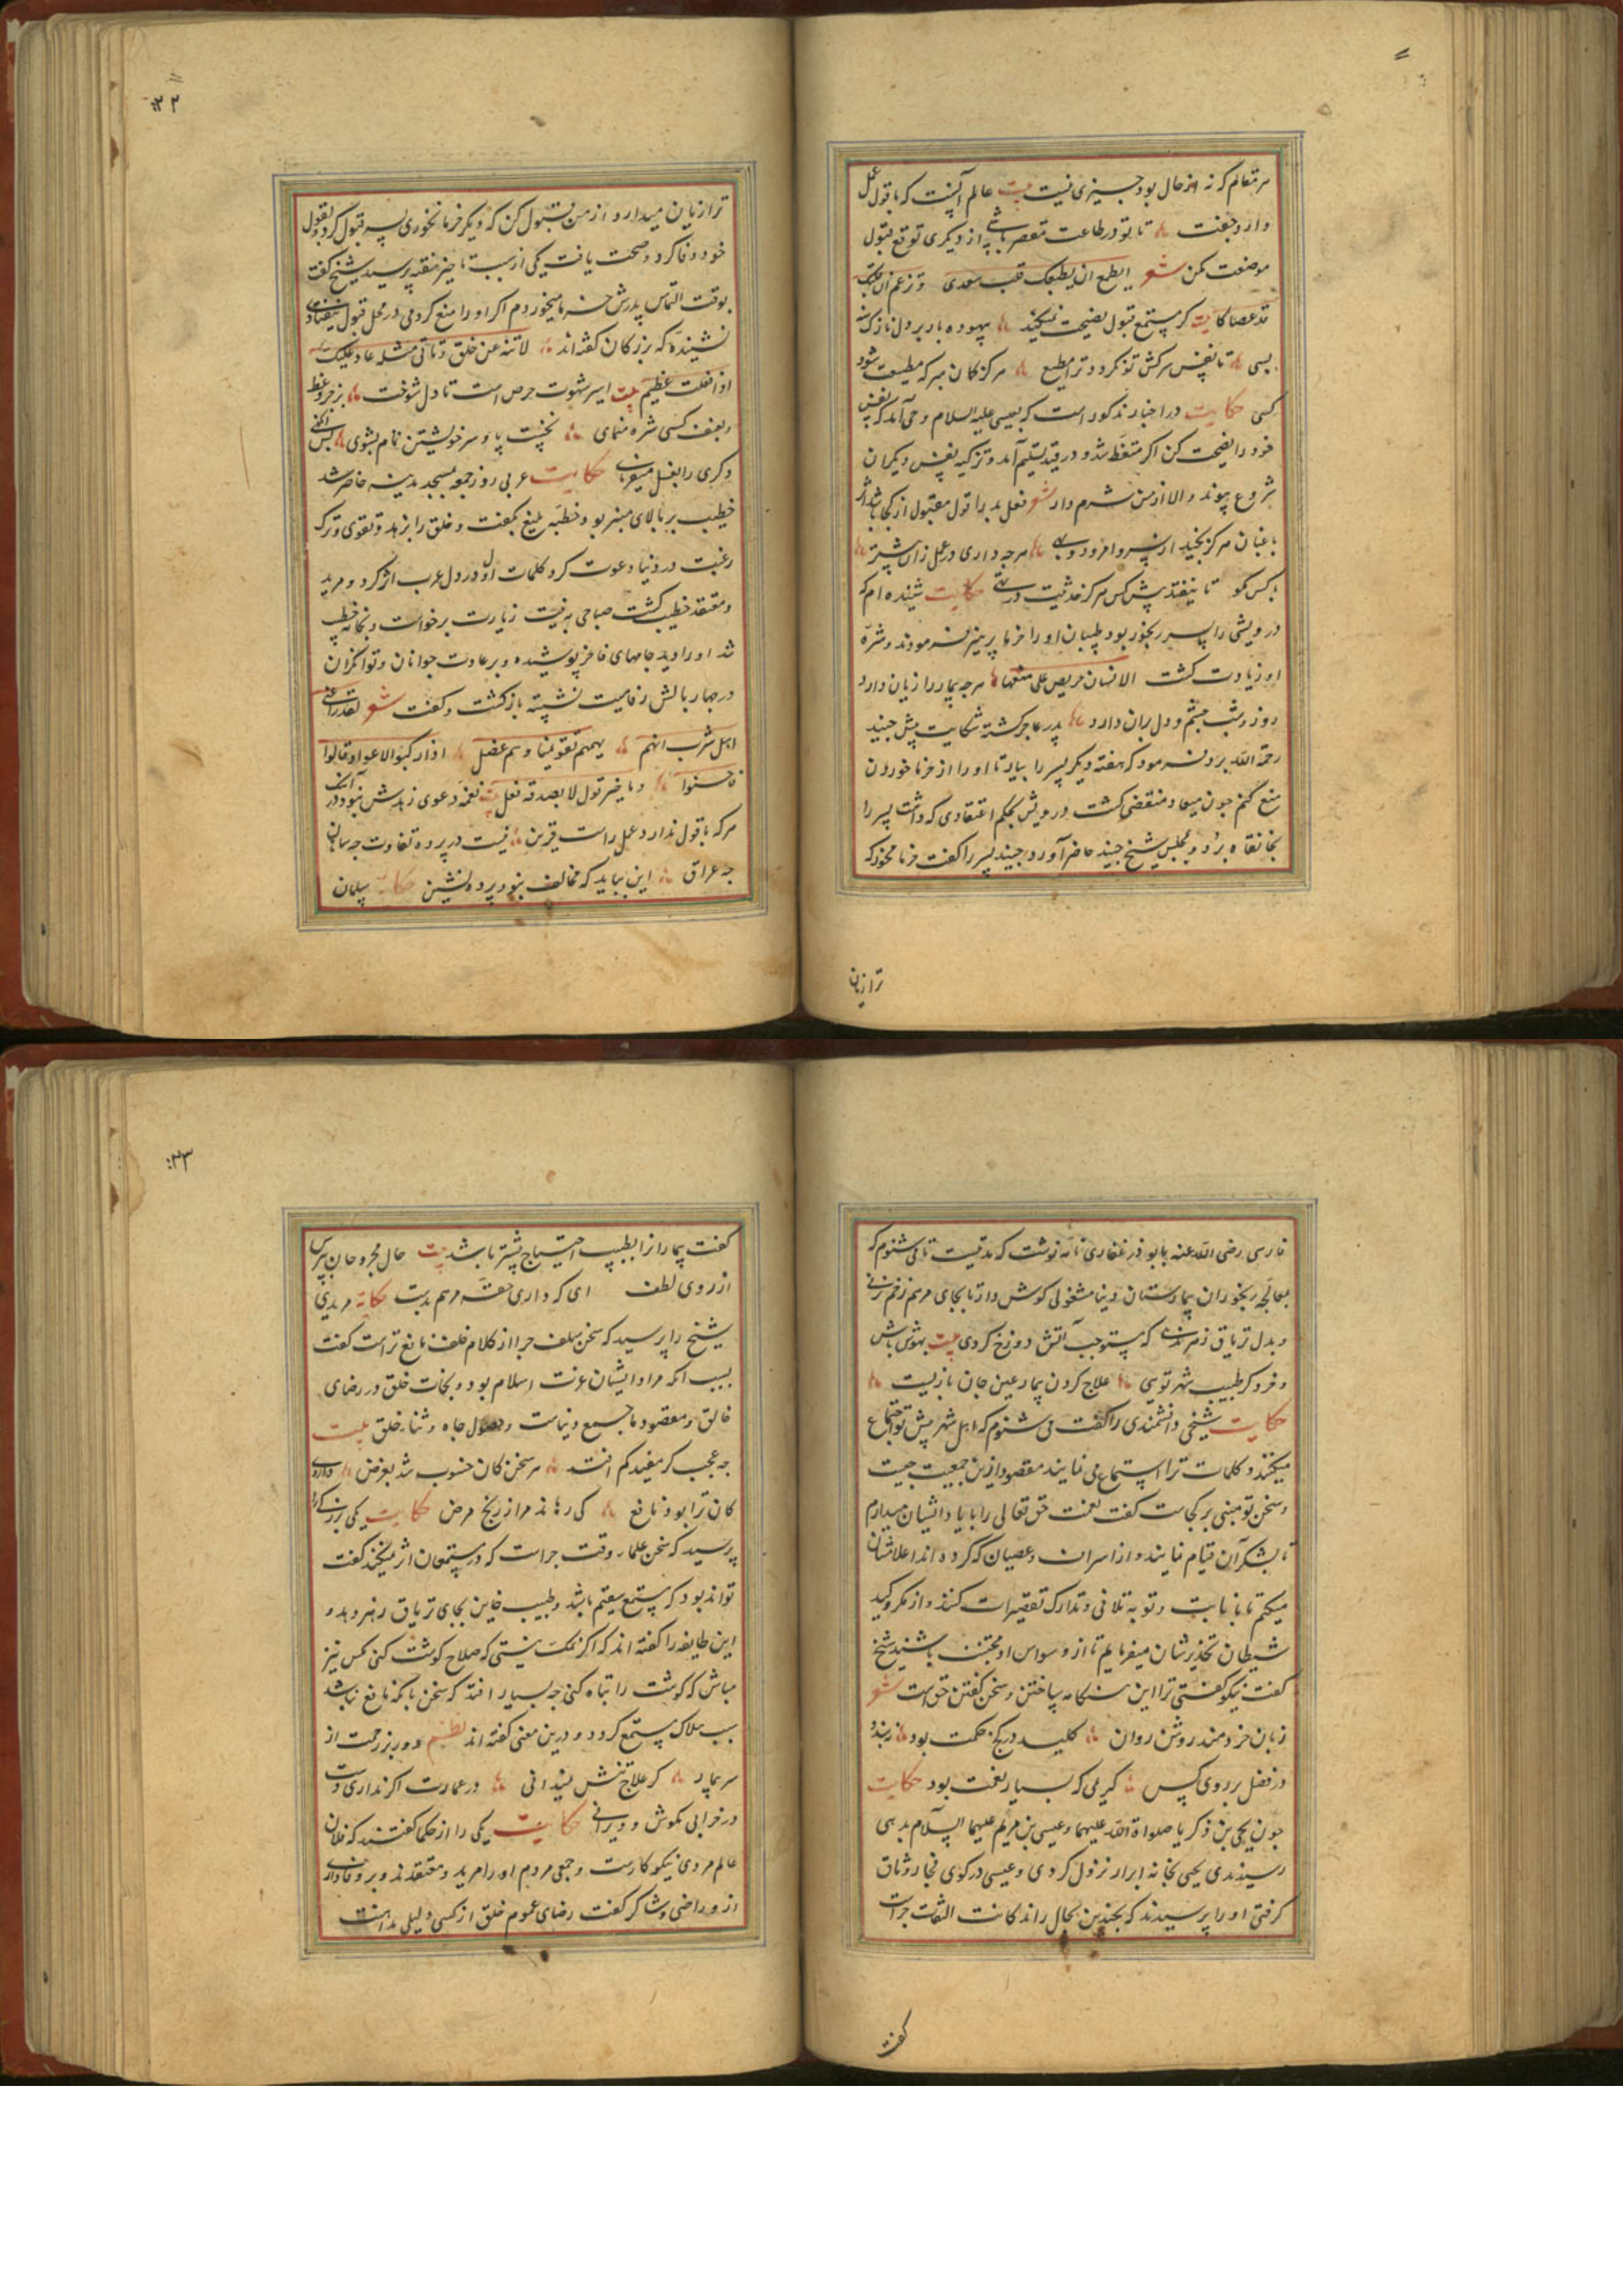 هر مقالم که نه از حال بود چیزی نیست بیت عالم آنست که با قول عمل
دارد جفت تا تو در طاعت مقصر باشی از دیگری توقع قبول
موعظت مکن شعر ایطمع ان یطیعک قلب سعدی وتزعم ان قلبک
قد عصاکا بیت گر مستمع قبول نصیحت نمیکند بیهوده بار بر دل نازک منه
بسی تا نفس سرکش تو نگردد ترا مطیع هرگز گمان مبر که مطیعت شود
کسی حکایت در اخبار مذکور است که بعیسی علیه السلام وحی آمد که نفس
خود را نصیحت کن اگر متعظ شد و در قید تسلیم آمد و تزکیه نفس دیگران
شروع پیوند والا از من شرم دار شعر فعل بد را قول مقبول از کجا باشد اثر
باغبان هرگز نچید از سرو امرود و بهی هرچه داری در عمل زان بیشتر
با کس مگو تا نیفتد پیش کس هرگز حدیثت در حکایت شنیده ام که
درویشی را پسر رنجور بود طبیبان او را خرما پرهیز فرمودند و شره
او زیادت گشت الانسان حریص علی ما منع هرچه بیمار را زیان دارد
روز و شب چشم و دل بران دارد پدر عاجز گشته شکایت پیش جنید
رحمة الله برد فرمود که هفته دیگر پسر را بیار تا او را از خرما خوردن
منع کنم چون میعاد منقضی گشت درویش بحکم اعتقادی که داشت پسر را
بخانقاه برد و بمجلس شیخ جنید حاضر آورد جنید پسر را گفت خرما مخور که
ترا زیان
۲۲
ترا زیان میدارد از من قبول کن که دیگر خرما نخوری پسر قبول کرد و بقول
خود وفا کرد و صحت یافت یکی از سبب تاخیر هفته پرسید شیخ گفت
بوقت التماس پدرش خرما میخوردم اگر او را منع کردمی در محل قبول نیفتادی
نشنیده که بزرگان گفته اند لا تنه عن خلق وتاتی مثله عار علیک
اذا فعلت عظیم بیت اسیر شهوت حرص است تا دل شوخت بزجر و وعظ
و بعنف کسی شره منمای نخست پا و سر خویشتن تمام بشوی پس آنگهی
دگری را بغسل میفرمای حکایت عربی روز جمعه بمسجد مدینه حاضر شد
خطیب بر بالای منبر بود و خطبه بلیغ بگفت و خلق را بزهد و تقوی و ترک
رغبت در دنیا دعوت کرد کلمات او در دل عرب اثر کرد و مرید
و معتقد خطیب گشت صباحی به نیت زیارت برخواست و بخانه خطیب
شد او را دید جامهای فاخر پوشیده و بر عادت جوانان و توانگران
در چهار بالش رفاهیت نشسته بازگشت و گفت شعر
اهل شرب انهم
فاحسنوا وما خیر قول لا یصدقه فعل بیت نغمه دعوی زهدش نبود در آهنگ
هرکه با قول ندارد عمل راست قرین نیست در پرده تفاوت چه سپاهان
چه عراق این بباید که مخالف نبود پرده نشین حکایت سلمان
فارسی رضی الله عنه بابو ذر غفاری نامه نوشت که مدتیست تا می شنوم که
بمعالجه رنجوران بیمارستان دنیا مشغولی گوش دار تا بجای مرهم زخم نزنی
و بدل تریاق زهر ندهی که مستوجب آتش دوزخ گردی بیت بهوش باش
و فرو گر طبیب شهر تویی علاج کردن بیمار عین جان بازیست
حکایت شیخی دانشمندی را گفت می شنوم که اهل شهر پیش تو اجتماع
میکنند و کلمات ترا استماع می نمایند مقصود ازین جمعیت چیست
و سخن تو مبنی بر کجاست گفت نعمت حق تعالی را با یاد ایشان میارم
تا بشکر آن قیام نمایند و از اسراف و عصیان که کرده اند اعلامشان
میکنم تا بانابت و توبه تلافی و تدارک تقصیرات کنند و از مکر و کید
شیطان تحذیرشان میفرمایم تا از وسواس او مجتنب باشند شیخ
گفت نیکو گفتی ترا این هنگامه ساختن و سخن گفتن حق است شعر
زبان خردمند روشن روان کلید در گنج حکمت بود
در فضل بر روی کس کریمی که بسیار نعمت بود حکایت
چون یحیی بن ذکریا صلواة الله علیهما و عیسی بن مریم علیهما السلام بدیهی
رسیدندی یحیی بخانه ابرار نزول کردی و عیسی در کوی فجار وثاق
گرفتی او را پرسیدند که بچندین بحال راندگانت التفات چراست
گفت
۲۳
گفت بیمارانرا بطبیب احتیاج بیشتر باشد بیت حال مجروحان بپرس
از روی لطف ای که داری حقه مرهم بدست حکایة مریدی
شیخ را پرسید که سخن سلف چرا از کلام خلف نافع تر است گفت
بسبب آنکه مراد ایشان عزت اسلام بود و نجات خلق و رضای
خالق و مقصود ما جمع دنیاست و حصول جاه و ثناء خلق بیت
چه عجب گر مفید کم افتد هر سخن کان منسوب شد بغرض داروی
کان ترا بود نافع کی رهاند مرا ز رنج مرض حکایت یکی بزرگی را
پرسید که سخن علماء وقت چراست که در مستمعان اثر نمیکند گفت
تواند بود که مستمع سقیم باشد و طبیب خاین بجای تریاق زهر دهد و
این طایفه را گفته اند که اگر نمک نیستی که صلاح گوشت کنی مگس نیز
مباش که گوشت را تباه کنی چه بسیار افتد که سخن با آنکه نافع نباشد
سبب هلاک مستمع گردد و درین معنی گفته اند نظم دور بر زحمت از
سر بیمار گر علاج تنش نمیدانی در عمارت اگر نداری دست
در خرابی مکوش و ویرانی حکایت یکی را از حکما گفتند که فلان
عالم مردی نیکوکارست و جمعی مردم او را مرید و معتقدند و بر وفاداری
از و راضی و شاکر گفت رضای عموم خلق از کسی دلیل مداهنت